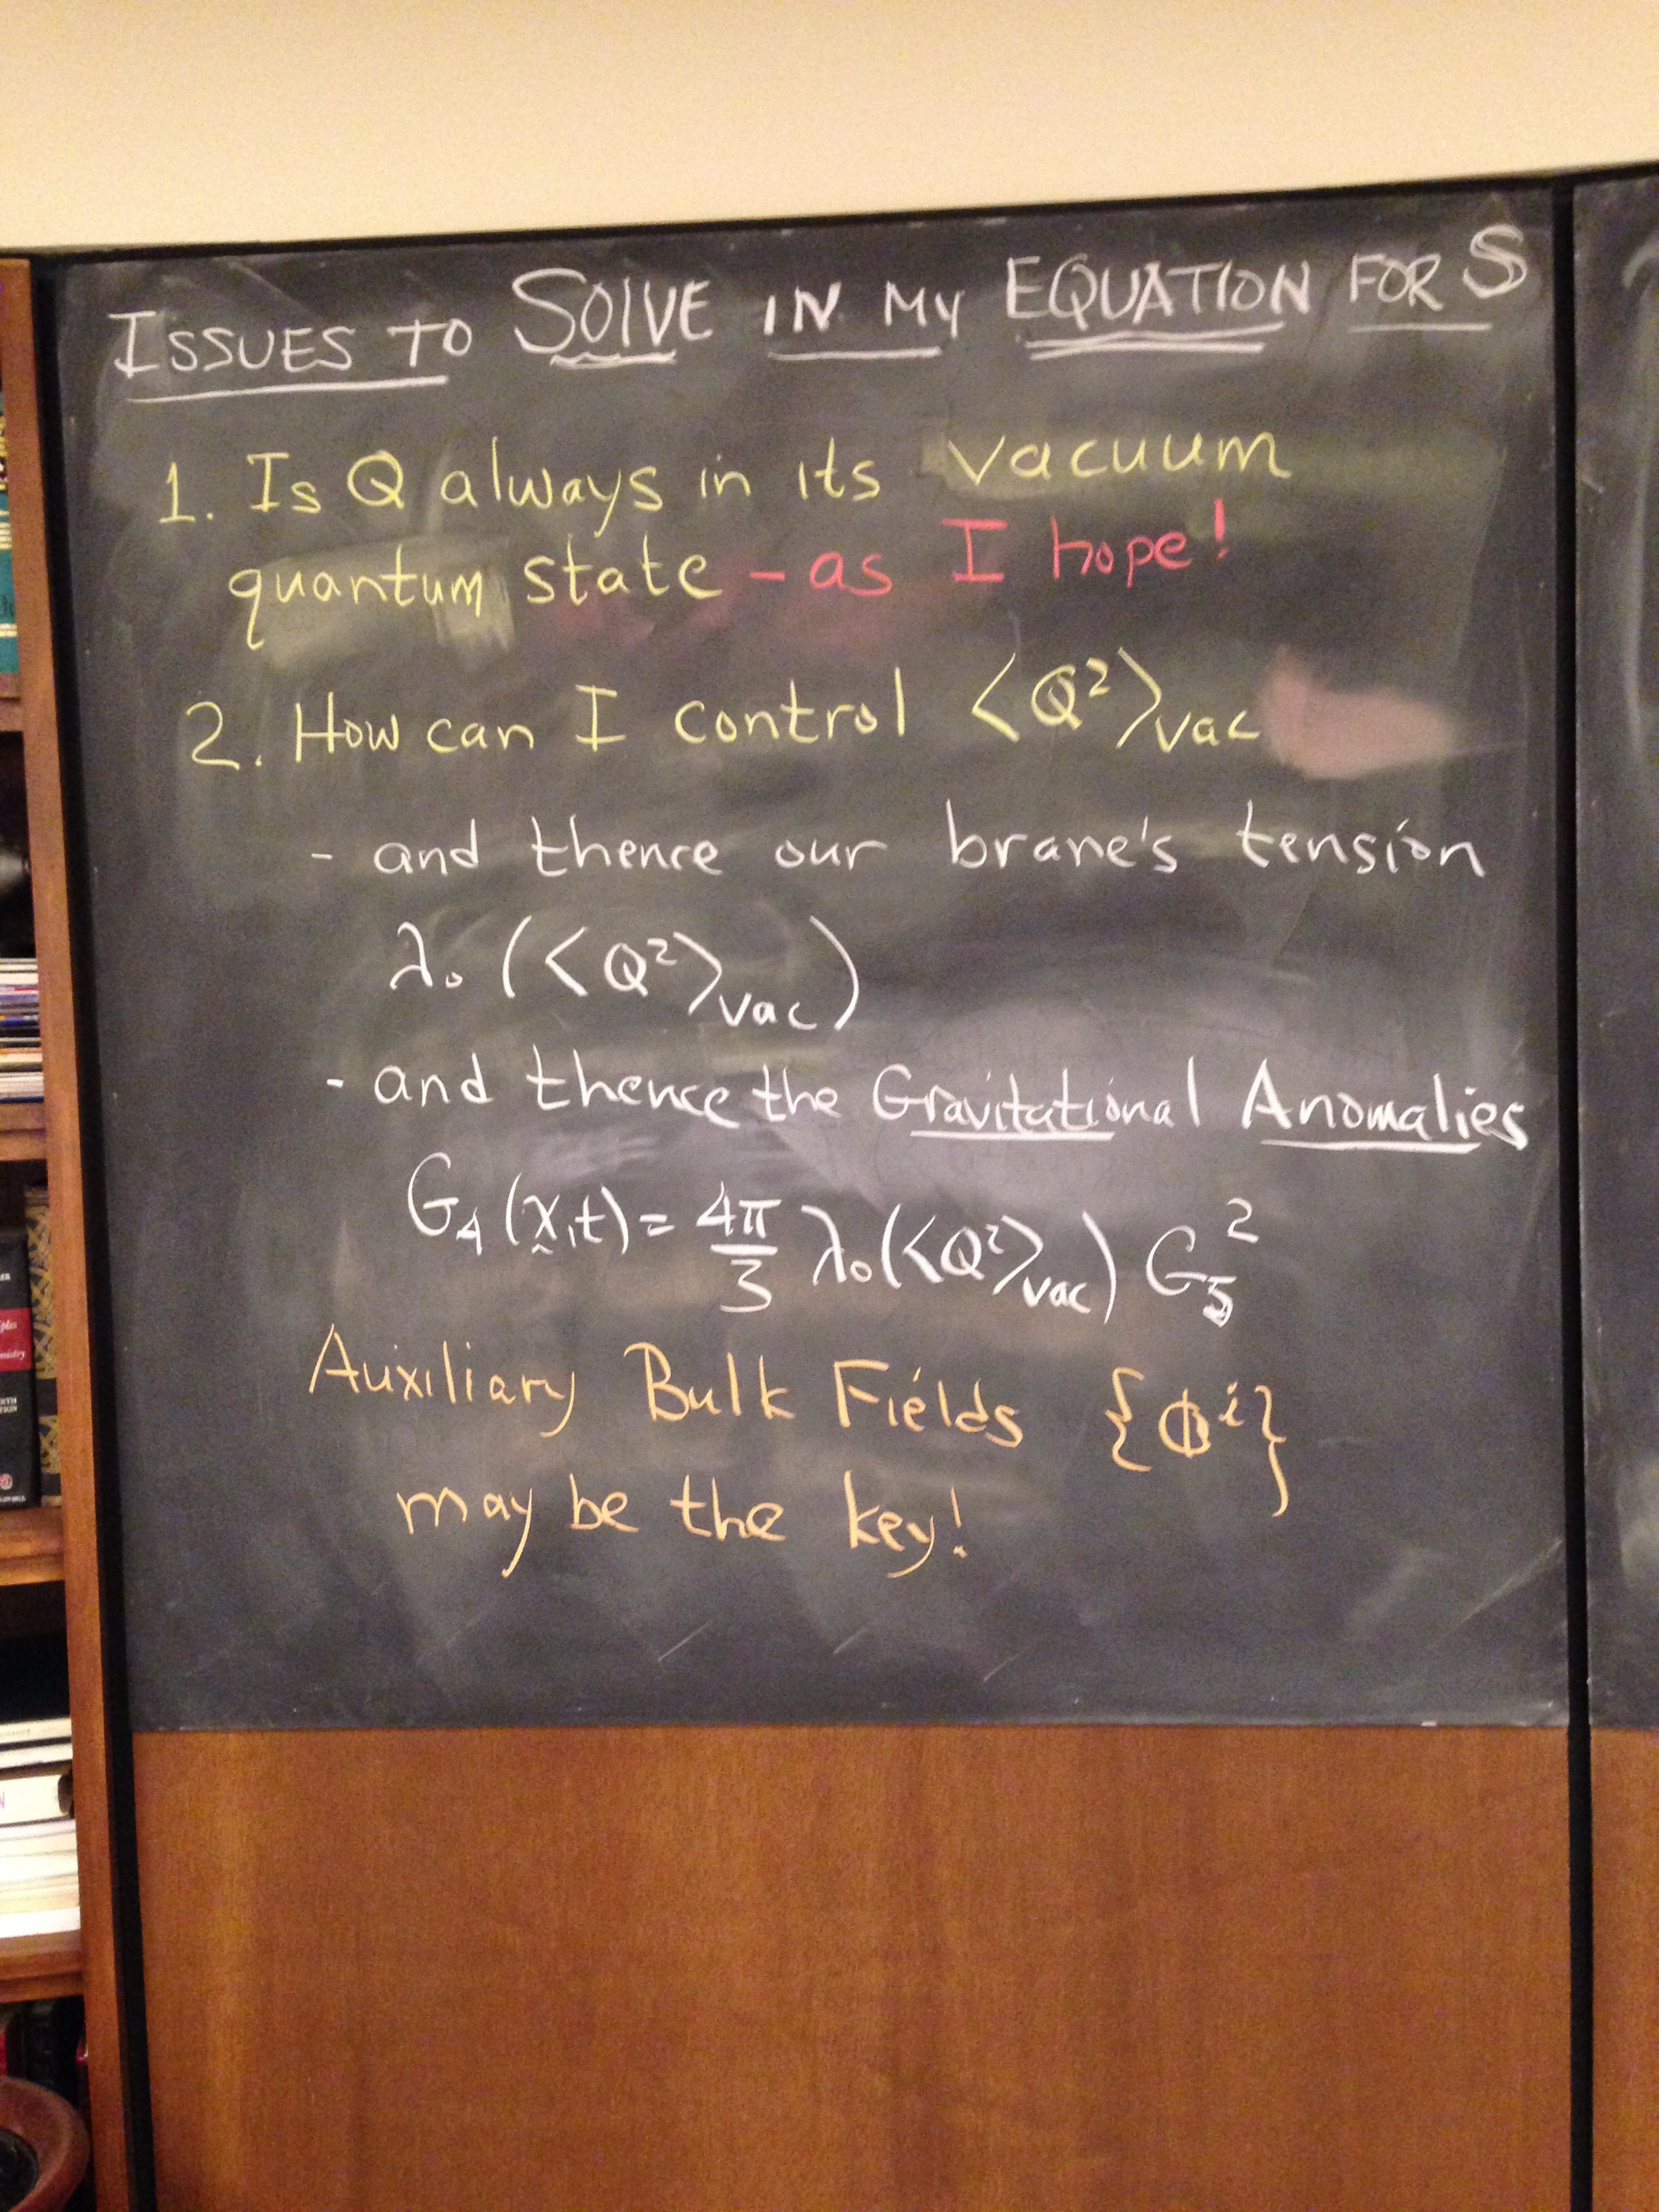 ISSUES TO SOLVE IN MY EQUATION FOR S
1. Is Q always in its vacuum
quantum state – as I hope!
2. How can I control <Q²>vac
- and thence our brane's tension
λ₀ (<Q²>vac)
- and thence the Gravitational Anomalies
G₄ (x,t) = 4π/3 λ₀(<Q²>vac) G₅²
Auxiliary Bulk Fields {Φⁱ}
may be the key!